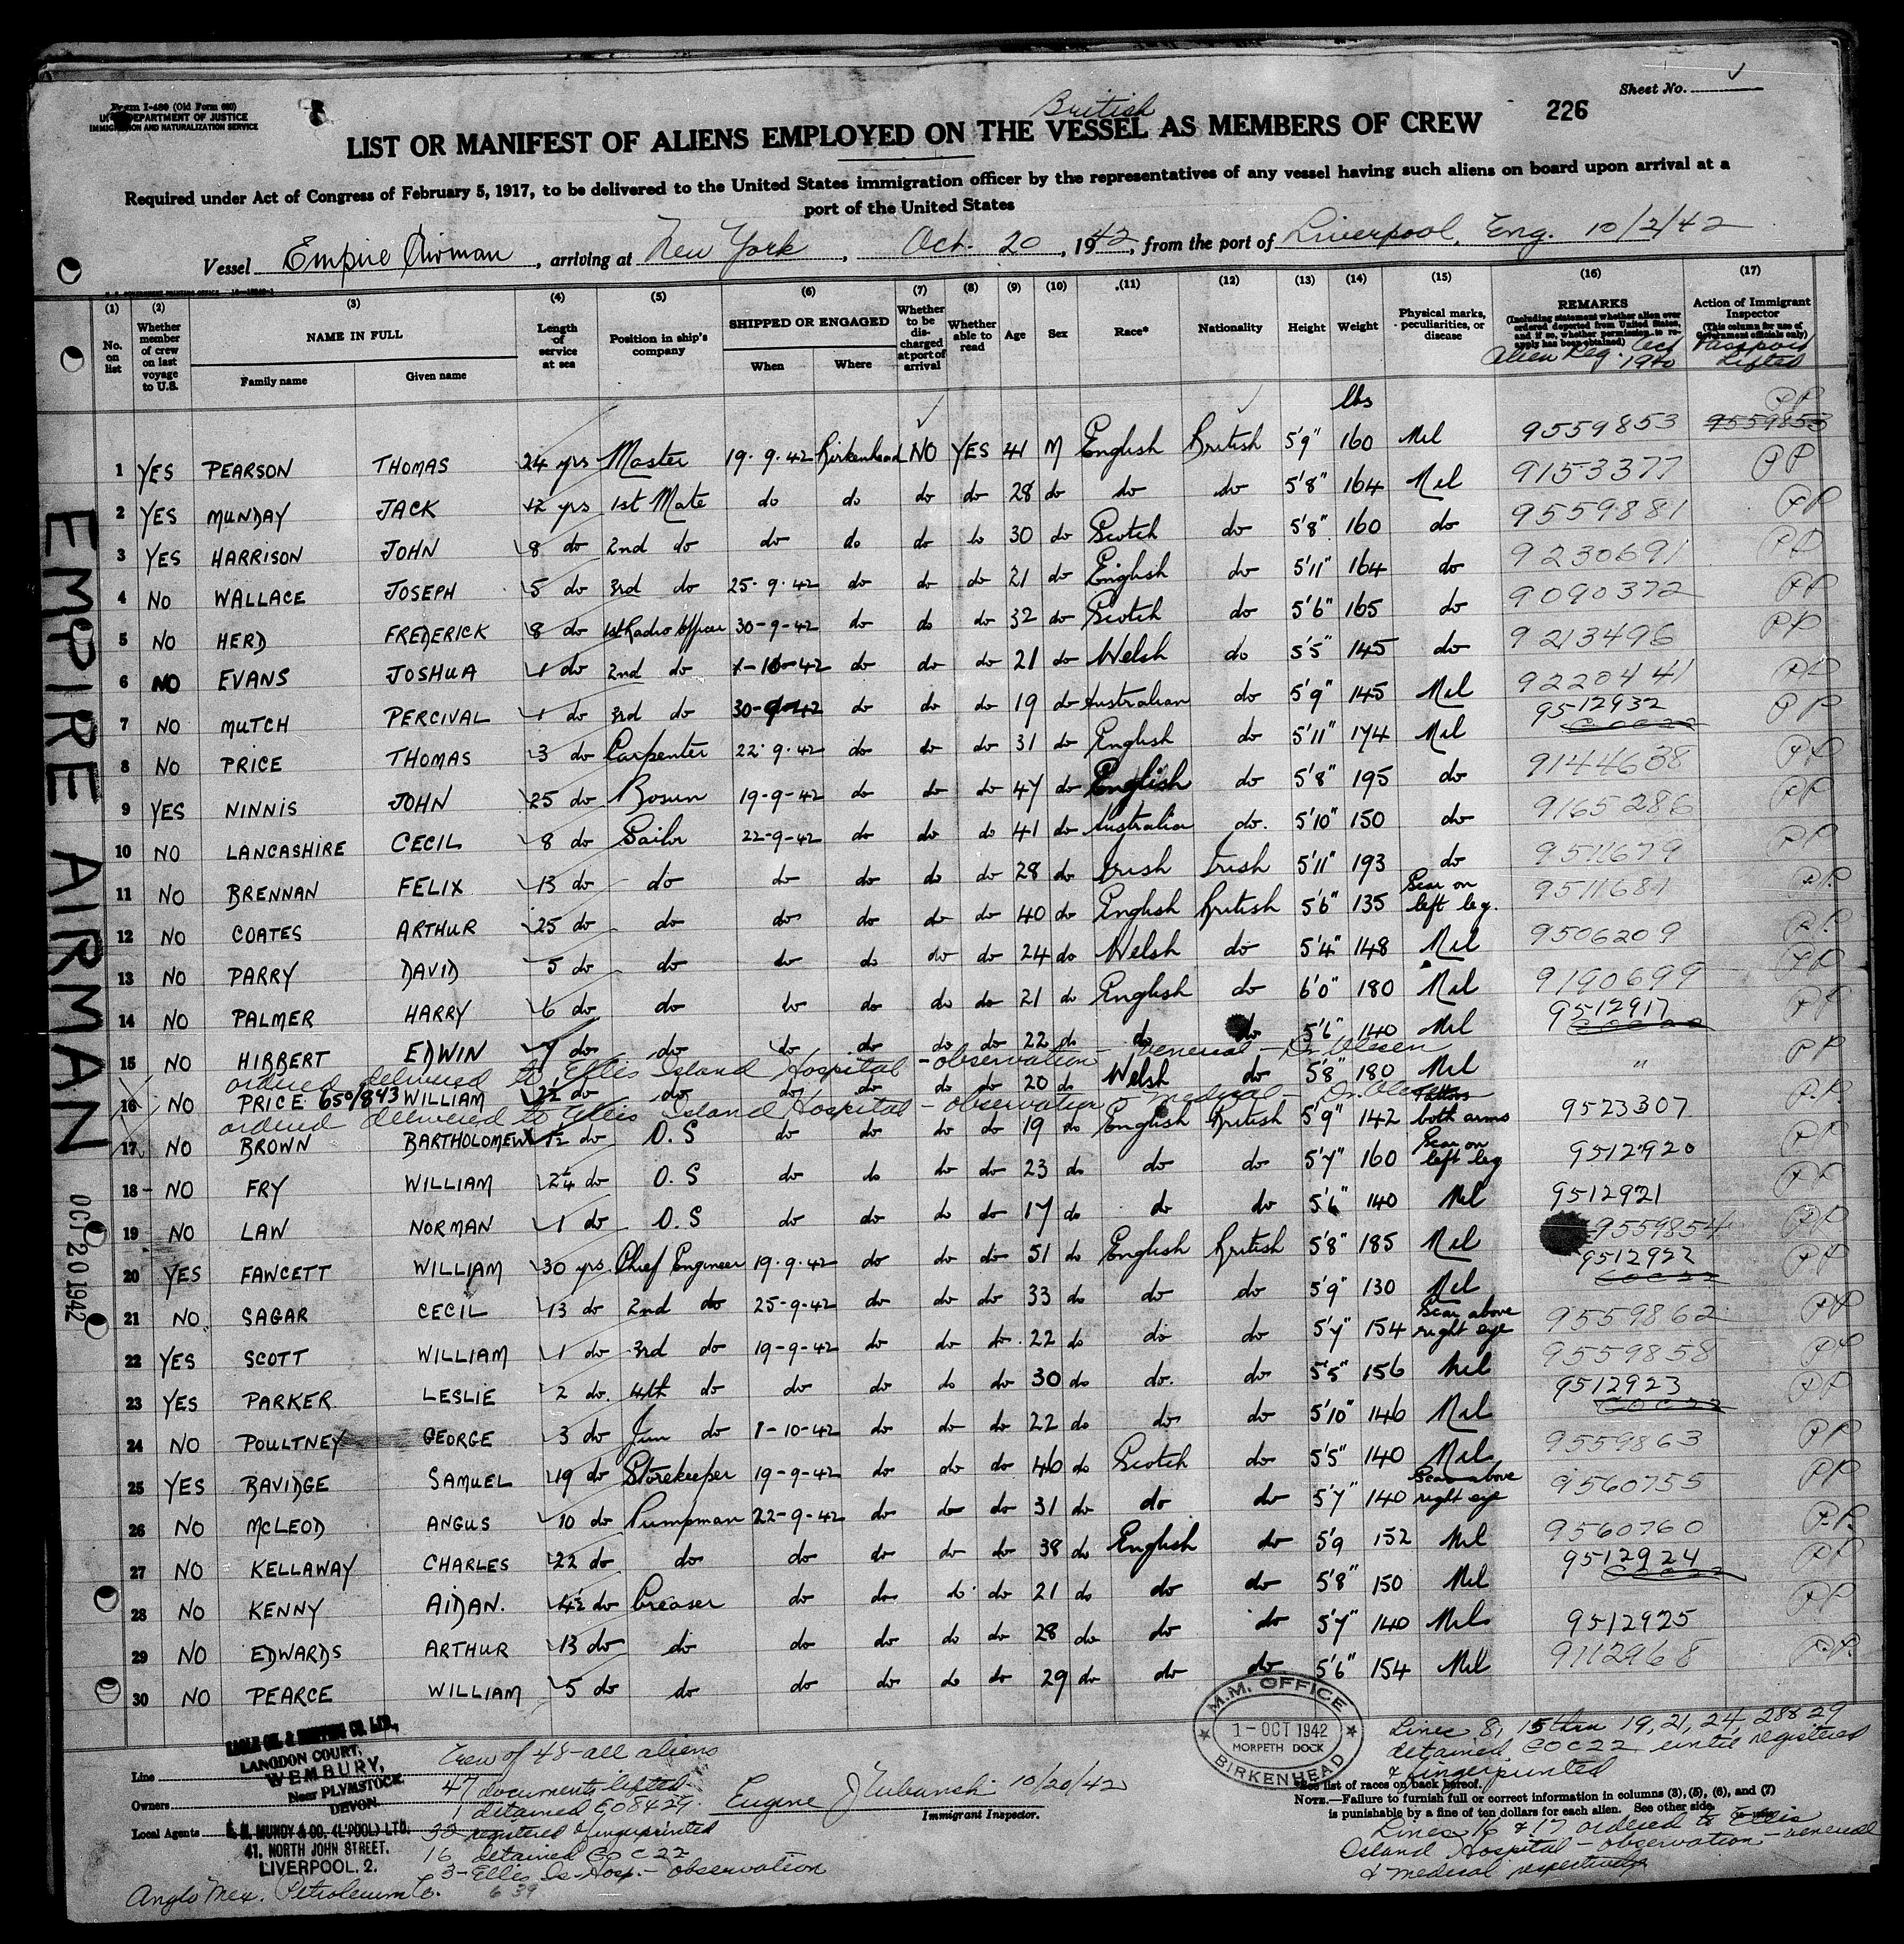 Form I-480 (Old Form 680)
DEPARTMENT OF JUSTICE
IMMIGRATION AND NATURALIZATION SERVICE
Sheet No.
226
British
LIST OR MANIFEST OF ALIENS EMPLOYED ON THE VESSEL AS MEMBERS OF CREW
Required under Act of Congress of February 5, 1917, to be delivered to the United States immigration officer by the representatives of any vessel having such aliens on board upon arrival at a
port of the United States
Vessel Empire Airman, arriving at New York, Oct. 20, 1942, from the port of Liverpool, Eng. 10/2/42
(1) (2) (3) (4) (5) (6) (7) (8) (9) (10) (11) (12) (13) (14) (15) (16) (17)
No. on list
Whether member of crew on last voyage to U.S.
NAME IN FULL
Family name
Given name
Length of service at sea
Position in ship's company
SHIPPED OR ENGAGED
When
Where
Whether to be discharged at port of arrival
Whether able to read
Age
Sex
Race*
Nationality
Height
Weight
Physical marks, peculiarities, or disease
REMARKS
(Including statement whether alien ever ordered deported from United States, and if so, whether permission to reapply has been obtained)
Alien Reg. Act 1940
Action of Immigrant Inspector
(This column for use of Government officials only)
Passport Lifted
lbs
1 YES PEARSON THOMAS 24 yrs Master 19.9.42 Birkenhead NO YES 41 M English British 5'9" 160 Nil 9559853 9559853 PP
2 YES MUNDAY JACK 12 yrs 1st Mate do do do do 28 do do do 5'8" 164 Nil 9153377 PP
3 YES HARRISON JOHN 8 do 2nd do do do do do 30 do Scotch do 5'8" 160 do 9559881 PP
4 NO WALLACE JOSEPH 5 do 3rd do 25.9.42 do do do 21 do English do 5'11" 164 do 9230691 PP
5 NO HERD FREDERICK 8 do 1st Radio Officer 30-9-42 do do do 32 do Scotch do 5'6" 165 do 9090372 PP
6 NO EVANS JOSHUA 1 do 2nd do 1-10-42 do do do 21 do Welsh do 5'5" 145 do 9213496 PP
7 NO MUTCH PERCIVAL 1 do 3rd do 30-9-42 do do do 19 do Australian do 5'9" 145 Nil 9220441 PP
8 NO PRICE THOMAS 3 do Carpenter 22.9.42 do do do 31 do English do 5'11" 174 Nil 9512932 PP
9 YES NINNIS JOHN 25 do Bosun 19-9-42 do do do 47 do English do 5'8" 195 do 9144638 PP
10 NO LANCASHIRE CECIL 8 do Sailor 22-9-42 do do do 41 do Australian do. 5'10" 150 do 9165286 PP
11 NO BRENNAN FELIX 13 do do do do do do 28 do Irish Irish 5'11" 193 do 9511679 PP
12 NO COATES ARTHUR 25 do do do do do do 40 do English British 5'6" 135 Scar on left leg. 9511681 PP
13 NO PARRY DAVID 5 do do do do do do 24 do Welsh do 5'4" 148 Nil 9506209 PP
14 NO PALMER HARRY 6 do do do do do do 21 do English do 6'0" 180 Nil 9190699 PP
15 NO HIBBERT EDWIN 7 do do do do do do 22 do do do 5'6" 140 Nil 9512917 PP
ordered delivered to Ellis Island Hospital - observation - venereal - Dr. Olesen
16 NO PRICE 650/843 WILLIAM 2½ do do do do do do 20 do Welsh do 5'8" 180 Nil " PP
ordered delivered to Ellis Island Hospital - observation - medical - Dr. Olesen
17 NO BROWN BARTHOLOMEW 1½ do O.S do do do do 19 do English British 5'9" 142 Tattoos both arms 9523307 P.P.
18 NO FRY WILLIAM 2¼ do O.S do do do do 23 do do do 5'7" 160 Scar on left leg 9512920 PP
19 NO LAW NORMAN 1 do O.S do do do do 17 do do do 5'6" 140 Nil 9512921 PP
20 YES FAWCETT WILLIAM 30 yrs. Chief Engineer 19.9.42 do do do 51 do English British 5'8" 185 Nil 9559854 PP
21 NO. SAGAR CECIL 13 do 2nd do 25-9-42 do do do 33 do do do 5'9" 130 Nil 9512922 PP
22 YES SCOTT WILLIAM 1 do 3rd do 19-9-42 do do do 22 do do do 5'7" 154 Scar above right eye 9559862 PP
23 YES PARKER LESLIE 2 do 4th do do do do do 30 do do. do 5'5" 156 Nil 9559858 PP
24 NO POULTNEY GEORGE 3 do Jun do 1-10-42 do do do 22 do do do 5'10" 146 Nil 9512923 PP
25 YES BAVIDGE SAMUEL 19 do Storekeeper 19-9-42 do do do 46 do Scotch do 5'5" 140 Nil 9559863 PP
26 NO McLEOD ANGUS 10 do Pumpman 22-9-42 do do do 31 do do do 5'7" 140 Scar above right eye 9560755 PP
27 NO KELLAWAY CHARLES 22 do do do do do do 38 do English do 5'9 152 Nil 9560760 P.P.
28 NO KENNY AIDAN. 4½ do Greaser do do do do 21 do do do 5'8" 150 Nil 9512924 PP
29 NO EDWARDS ARTHUR 13 do do do do do do 28 do do do 5'7" 140 Nil 9512925 PP
30 NO PEARCE WILLIAM 5 do do do do do do 29 do do do 5'6" 154 Nil 9112968 P.P.
EMPIRE AIRMAN
OCT 20 1942
Line
Owners
Local Agents
EAGLE OIL & SHIPPING CO. LTD.,
LANGDON COURT,
WEMBURY,
Near PLYMSTOCK,
DEVON.
MUNDY & CO. (L'POOL) LTD.
41, NORTH JOHN STREET.
LIVERPOOL. 2.
Anglo Mex. Petroleum Co.
Crew of 48 - all aliens
47 documents lifted
1 detained CO8429.
32 registered & fingerprinted
16 detained CO C22
3 - Ellis Is. Hosp. - observation
6 39
Eugene J. 10/20/42
Immigrant Inspector.
M.M. OFFICE
1-OCT 1942
MORPETH DOCK
BIRKENHEAD
Lines 8, 15 thru 19, 21, 24, 28 & 29
detained COC22 until registered
& fingerprinted
See list of races on back hereof.
NOTE.—Failure to furnish full or correct information in columns (3), (5), (6), and (7)
is punishable by a fine of ten dollars for each alien. See other side.
Lines 16 & 17 ordered to Ellis
Island Hospital - observation - venereal
& medical respectively